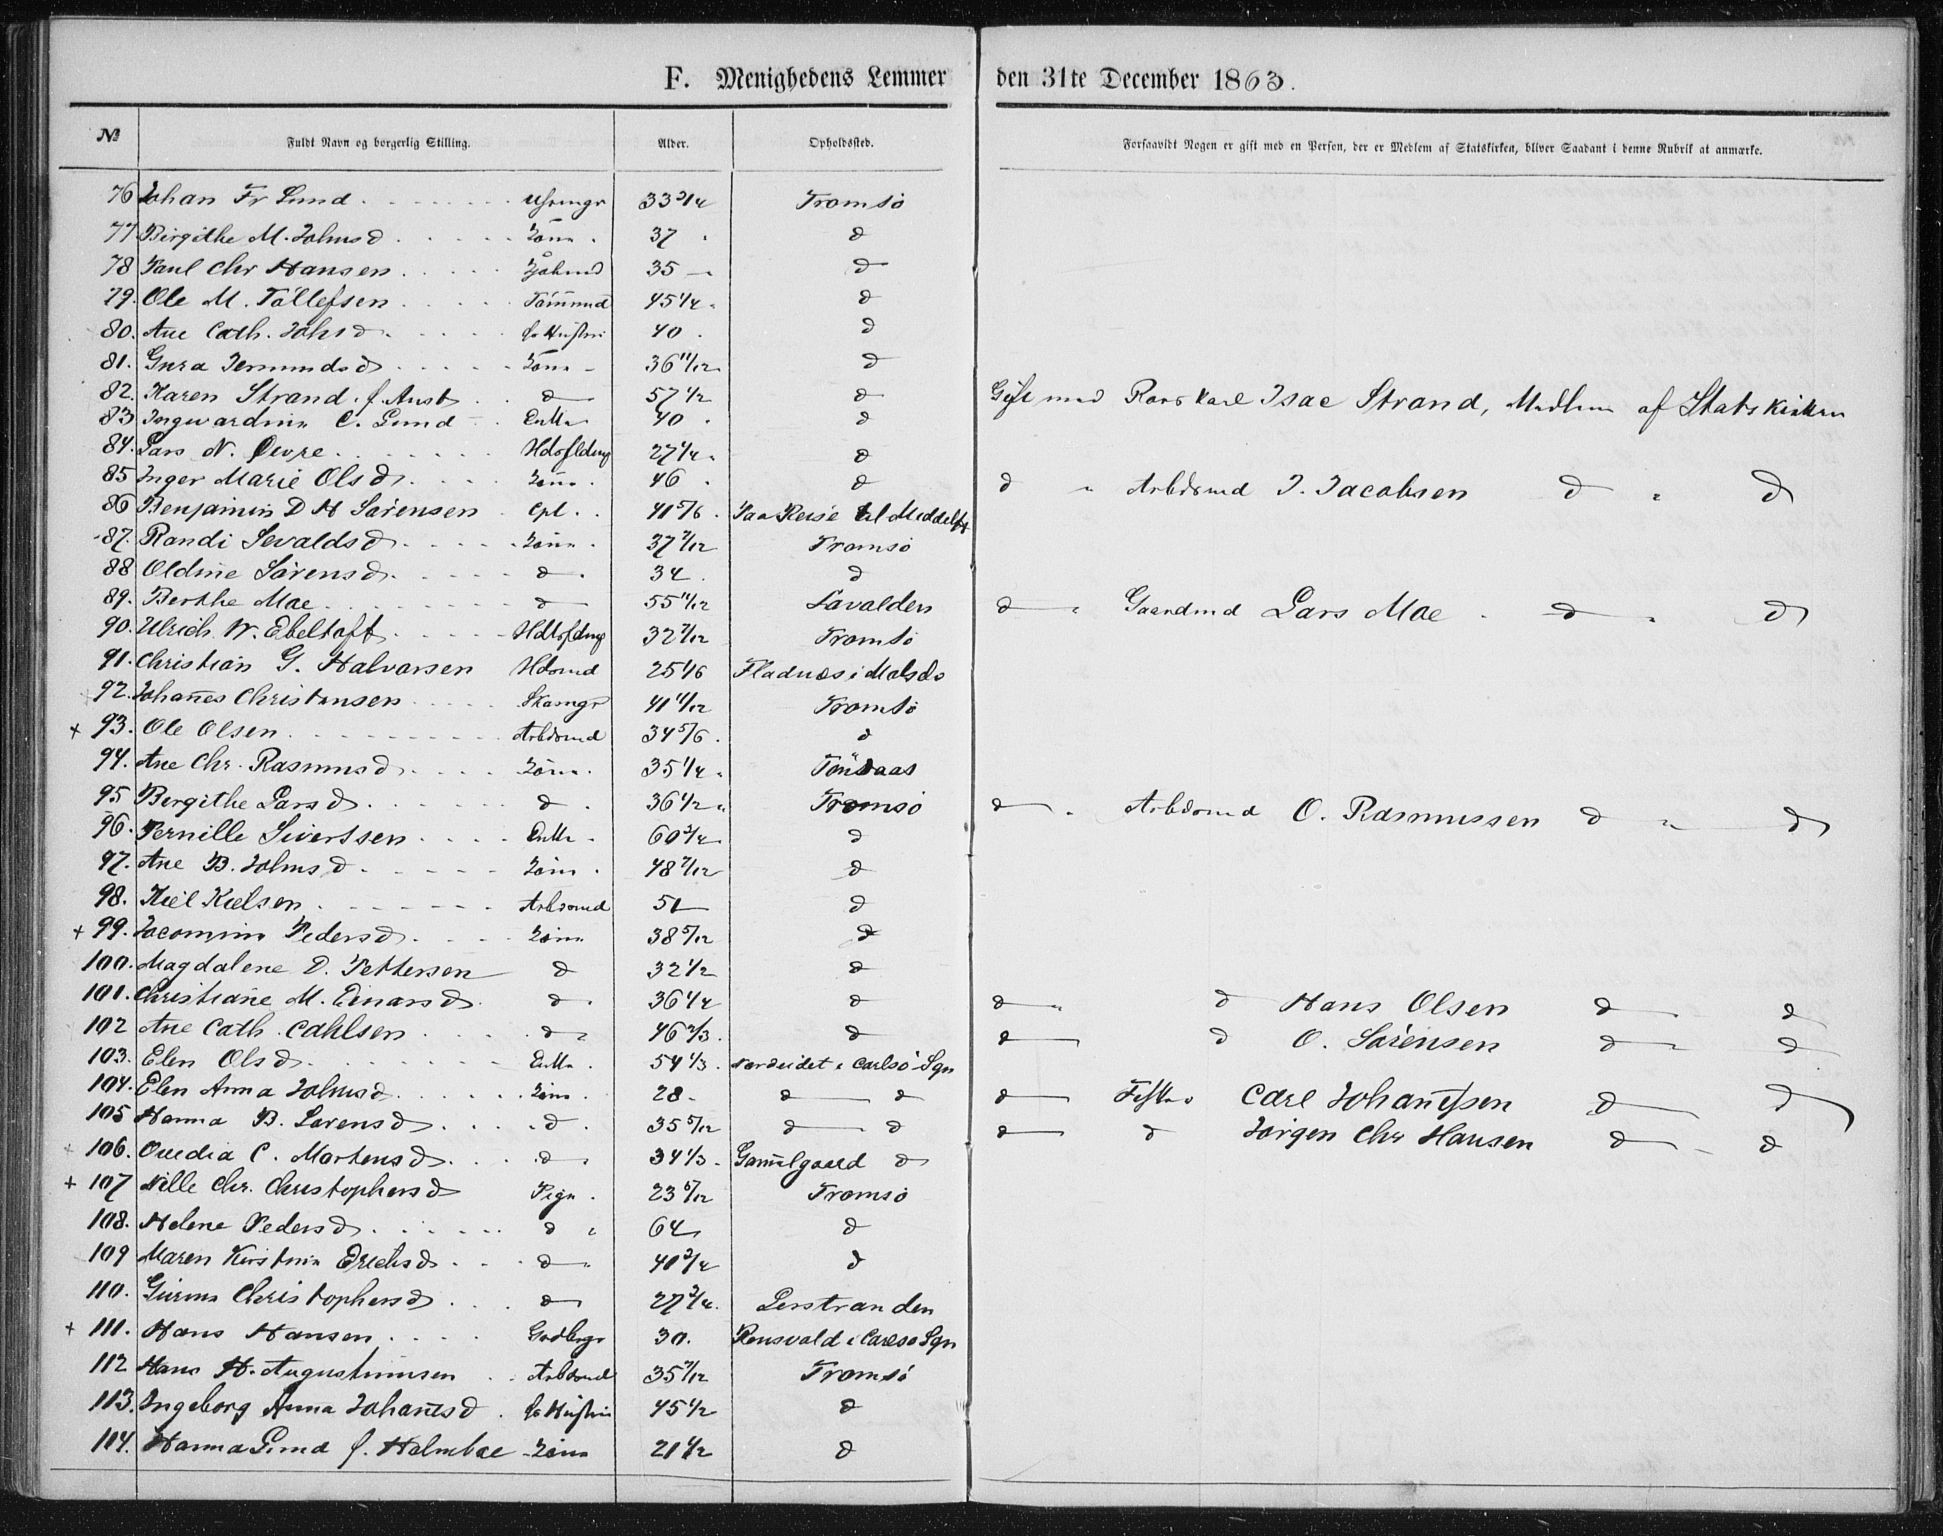 F. Menighedens Lemmer den 31te December 1863.
№ Fuldt Navn og borgerlig Stilling. Alder. Opholdssted. Forsaavidt Nogen er gift med en Person, der er Medlem af Statskirken, bliver Saadant i denne Rubrik at anmærke.
76 Johan Fr Lund Uhrmgr 33 3/4 Tromsö
77 Birgithe M. Johnsd 37 d
78 Paul Chr Hansen 35 d
79. Ole M. Tollefsen Tömmd 45 1/4 d
80. Ane Cath. Johsd Hustru 40 d
81. Gura Jermundsd 36 11/12 d
82. Karen Strand f. Aust d 57 1/2 d Gift med Isac Strand, Medlem af Statskirken
83 C. Lund Enke 40 d
84. Lars N. Qevre 27 1/4 d
85 Inger Marie Olsd 46 d d Arbdsmd I. Jacobsen d d
86 Benjamin D H Sörensen Cpl. 41 5/6 Paa Reise til
87. Randi Sevaldsd 37 7/12 Tromsö
88 Oldine Sörensd d 34 d
89. Berthe Moe d 55 11/12 Lavalden d Gaardmd Lars Moe d d
90. Ulrich W. Ebeltoft 32 7/12 Tromsö
91. Christian G. Halvorsen 25 1/6 Fladnæs i Malsds
92. Johañes Christensen Skomgr 41 11/12 Tromsö
+ 93. Ole Olsen Arbdsmd 34 5/6 d
94. Ane Chr. Rasmusd 35 1/4 Tönsaas
95 Bergithe Larsd d 36 1/2 Tromsö d Arbdsmd O. Rasmussen d d
96. Pernille Sivertsen Enke 60 3/4 d
97. Ane B. Johnsd 48 7/12 d
98. Kiel Kielsen Arbdsmd 51 d
+ 99. Jacomine Pedersd 38 5/12 d
100. Magdalene D. Pettersen d 32 1/2 d
101. Christiane M. Einarsd d 36 1/4 d d d Hans Olsen d d
102 Ane Cath. Cahlsen d 46 2/3 d d d O. Sörensen d d
103. Elen Olsd Enke 54 1/3 Nordeidet i Carlsö Sgn
104. Elen Anna Johnsd 28 d d d Fisker Carl Johañesen d d
105 Hanna B. Sorensd d 35 5/12 d d d d Jörgen Chr Hansen d d
+ 106. Ovedia C. Mortensd d 34 1/3 Gamelgaard d
+ 107 Nille Chr. Christophersd Pige 23 5/12 Tromsö
108. Helene Pedersd d 64 d
109 Maren Kirstine Erichsd d 40 3/4 d
110. Christophersd d 27 3/4 Lerstranden
+ 111. Hans Hansen 30. Rensvold i Carlsö Sgn
112 Hans H. Augustinusen Arbdsmd 35 7/12 Tromsö
113. Ingeborg Anna Johañesd Hustru 45 1/2 d
114. Hanna Lund f. Holmboe 21 1/2 d